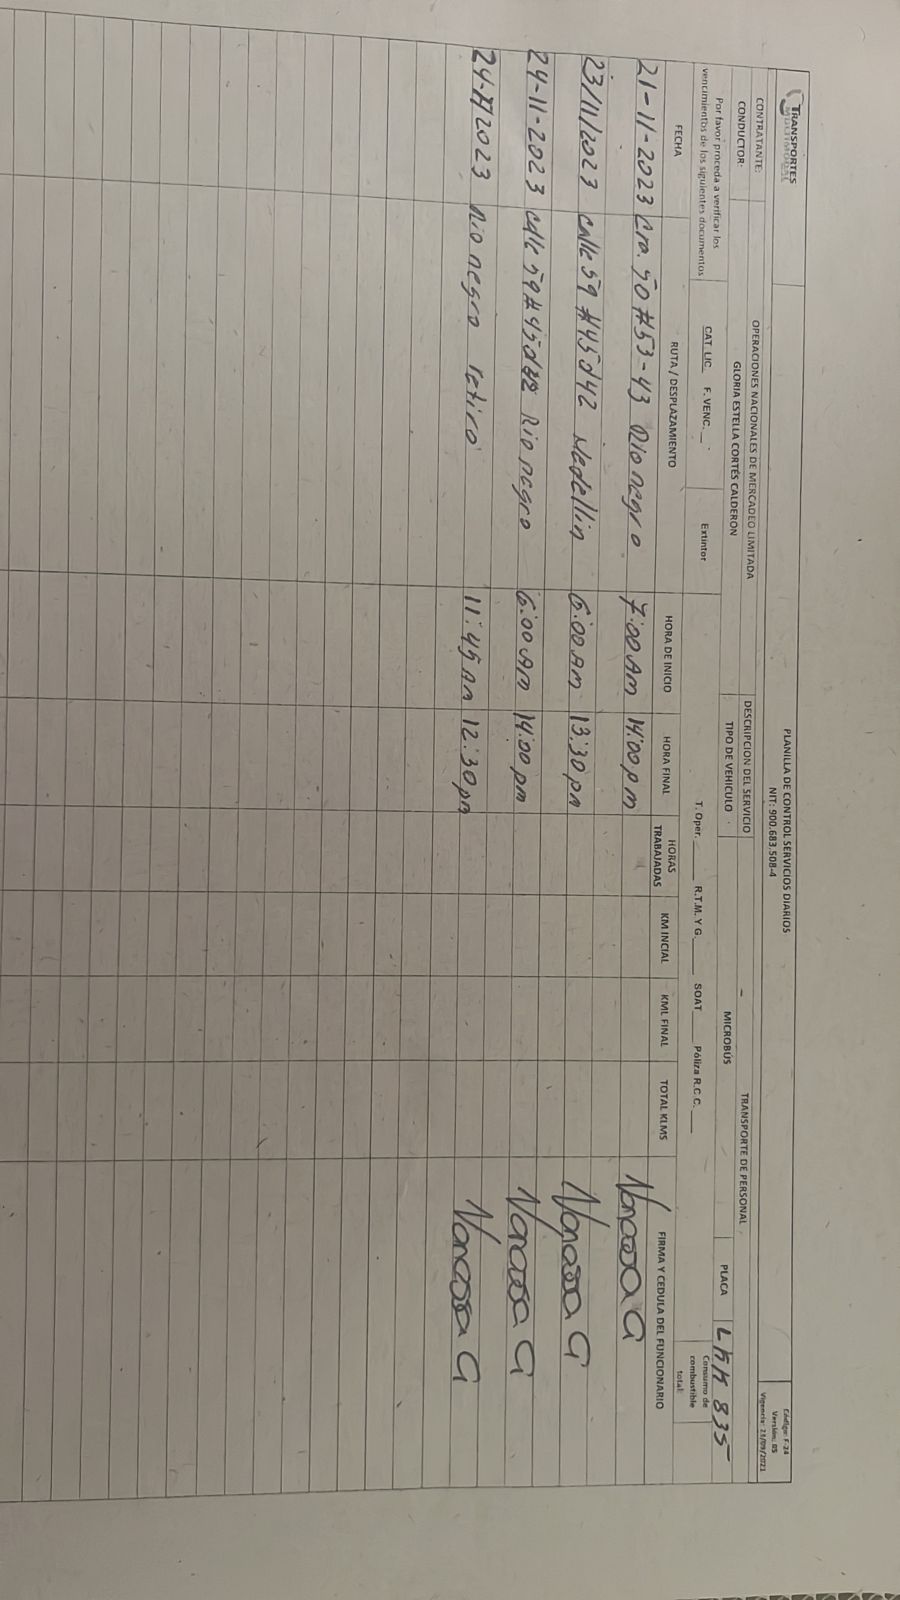 TRANSPORTES
MULTIMODAL
PLANILLA DE CONTROL SERVICIOS DIARIOS
NIT: 900.683.508-4
Código: F-24
Versión: 05
Vigencia: 21/09/2021
CONTRATANTE: OPERACIONES NACIONALES DE MERCADEO LIMITADA DESCRIPCION DEL SERVICIO TRANSPORTE DE PERSONAL
CONDUCTOR: GLORIA ESTELLA CORTÉS CALDERON TIPO DE VEHICULO MICROBÚS PLACA LKK 835
Por favor proceda a verificar los vencimientos de los siguientes documentos CAT LIC F. VENC. Extintor T. Oper. R.T.M. Y G. SOAT Póliza R.C.C. Consumo de combustible total:
FECHA RUTA / DESPLAZAMIENTO HORA DE INICIO HORA FINAL HORAS TRABAJADAS KM INCIAL KML FINAL TOTAL KLMS FIRMA Y CEDULA DEL FUNCIONARIO
21-11-2023 Cra. 50 #53-43 Rionegro 7:00 AM 14:00 pm
23/11/2023 calle 59 #45d42 Medellin 6:00 AM 13:30 pm
24-11-2023 calle 59 #45d42 Rionegro 6:00 AM 14:00 pm
24-11 2023 Rionegro retiro 11:45 AM 12:30 pm